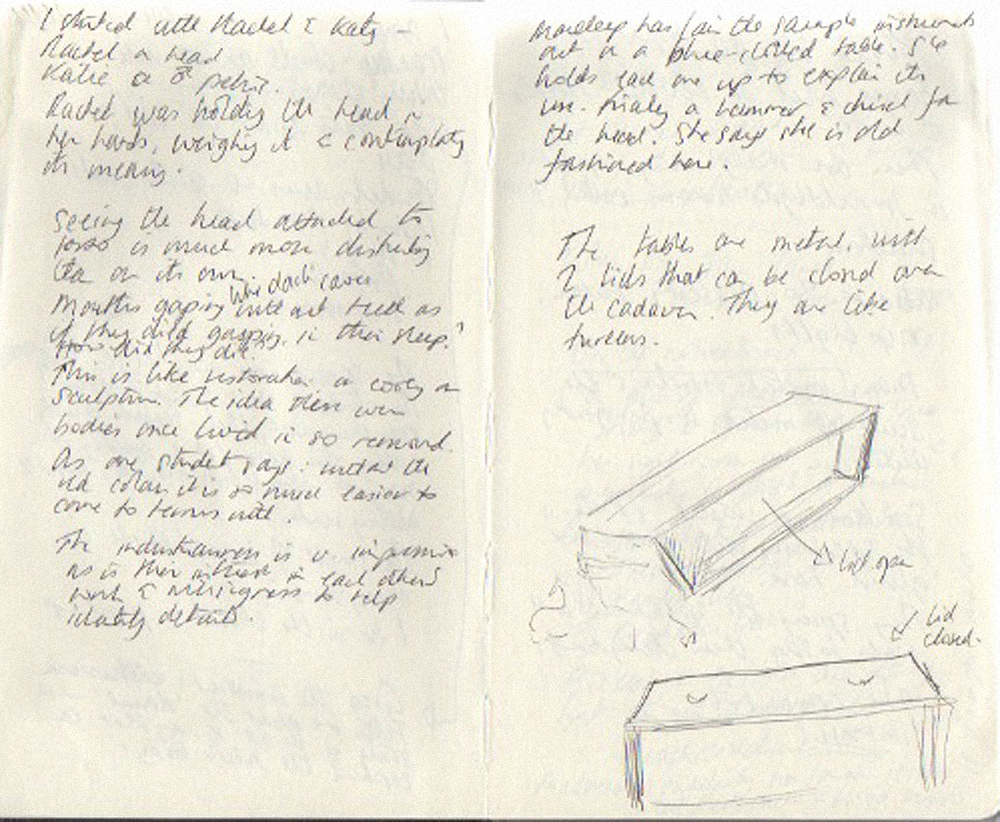 I started with Rachel & Katie –
Rachel a head
Katie a ♂ pelvis.
Rachel was holding the head in
her hands, weighing it & contemplating
its meaning.
Seeing the head attached to
torso is much more disturbing
than on its own.
like dark caves
Mouths gaping without teeth as
if they died gasping, in their sleep?
How did they die.
This is like restoration a
sculpture. The idea these were
bodies once lived is so removed.
As one student says: with the
it is so much easier to
come to terms with.
The industriousness is so impressive
as is their interest in each others
work & willingness to help
identify details.
Mandeep has lain the sample instruments
out on a blue-clothed table. She
holds each one up to explain its
use. Finally a hammer & chisel for
the head. She says she is old
fashioned here.
The tables are metal, with
2 lids that can be closed over
the cadaver. They are like
tureens.
lid open
lid
closed.